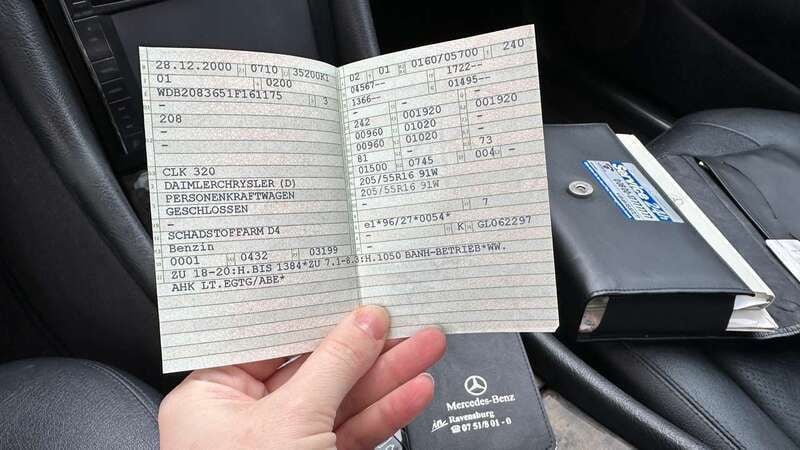 28.12.2000 0710 35200K1
01 0200
WDB2083651F161175 3
-
208
-
-
CLK 320
DAIMLERCHRYSLER (D)
PERSONENKRAFTWAGEN
GESCHLOSSEN
-
SCHADSTOFFARM D4
Benzin
0001 0432 03199
ZU 18-20:H.BIS 1384*ZU 7.1-8.3:H.1050 BANH-BETRIEB*WW.
AHK LT.EGTG/ABE*
02 01 0160/05700 240
04567-- 1722--
1366-- 01495--
-
242 001920 001920
00960 01020 -
00960 01020 -
81 - 73
01500 0745 004 -
205/55R16 91W
205/55R16 91W
-
- 7
e1*96/27*0054*
- K GL062297
Mercedes-Benz
Ravensburg
☎ 07 51/8 01 - 0